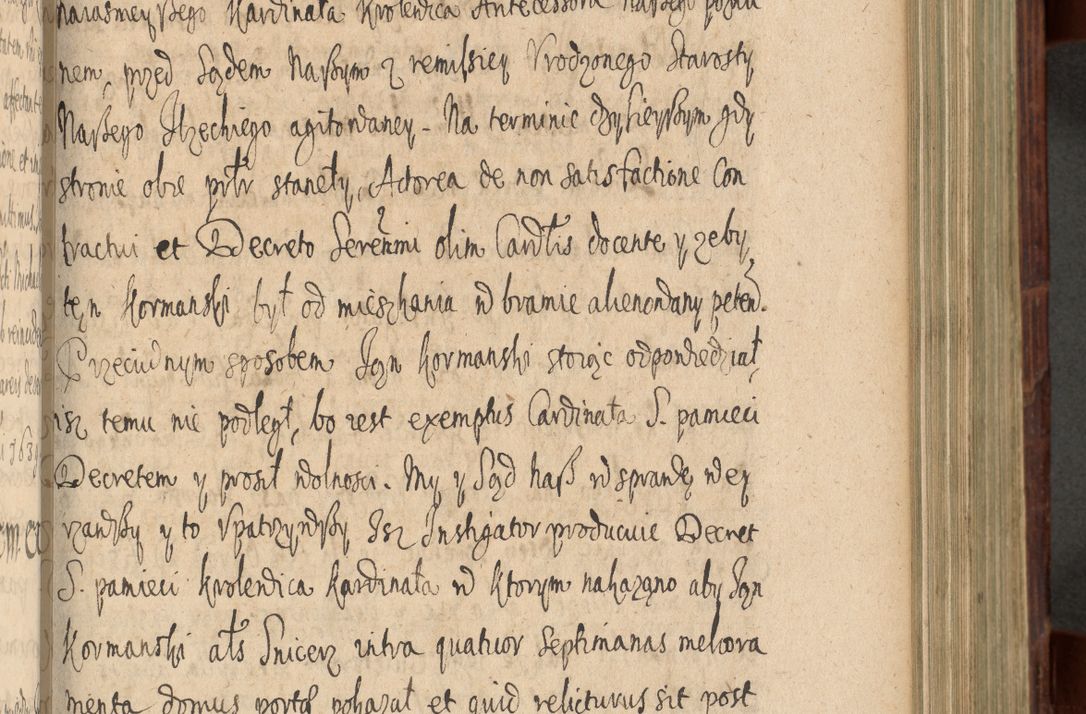 Naiasnieyszego Kardinała Krolewica Antecessora Naszego
nem, przed Sądem Naszym z remissiey Vrodzonego Starosty
Naszego Ilzeckiego agitowaney. Na terminie dzysieyszym gdy
stronie obie prłr stanęły, Actorea de non satisfactione Con
tractui et Decreto Serenmi olim Cardlis docente y zeby
ten Kormanski był od mieszkania w bramie alienowany peten.
Przeciwnym sposobem Jan Kormanski stoiąc odpowiedział,
isz temu nie podległ, bo iest exemptus Cardinała S. pamieci
Decretem y prosił wolnosci. My y Sąd nasz w sprawę wey
rzawszy y to vpatrzywszy Isz Instigator producuie Decret
S. pamieci Krolewica Kardinała w ktorym nakazano aby Jan
Kormanski als Snicerz intra quatuor Septimanas meliora
menta domus portę pokazał et quid relicturus sit post